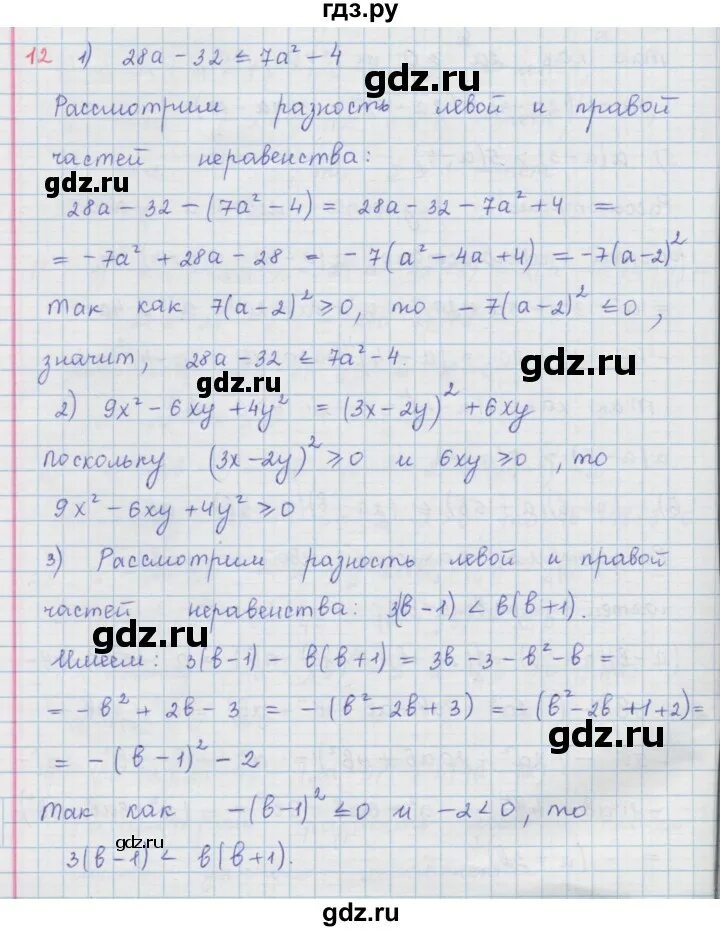 гдз.ру
12 1) 28a − 32 ≤ 7a² − 4
gdz.ru
Рассмотрим разность левой и правой
частей неравенства:
gdz.ru
28a − 32 − (7a² − 4) = 28a − 32 − 7a² + 4 =
= −7a² + 28a − 28 = −7(a² − 4a + 4) = −7(a−2)²
так как 7(a−2)² ≥ 0, то −7(a−2)² ≤ 0,
значит, 28a − 32 ≤ 7a² − 4.
gdz.ru
gdz.ru
2) 9x² − 6xy + 4y² = (3x − 2y)² + 6xy
поскольку (3x − 2y)² ≥ 0 и 6xy ≥ 0, то
9x² − 6xy + 4y² ≥ 0
3) Рассмотрим разность левой и правой
частей неравенства: 3(в − 1) < в(в + 1).
gdz.ru
Имеем: 3(в−1) − в(в+1) = 3в − 3 − в² − в =
= −в² + 2в − 3 = −(в² − 2в + 3) = −(в² − 2в + 1 + 2) =
gdz.ru
= −(в − 1)² − 2
Так как −(в−1)² ≤ 0 и −2 < 0, то
gdz.ru
3(в − 1) < в(в + 1).
gdz.ru